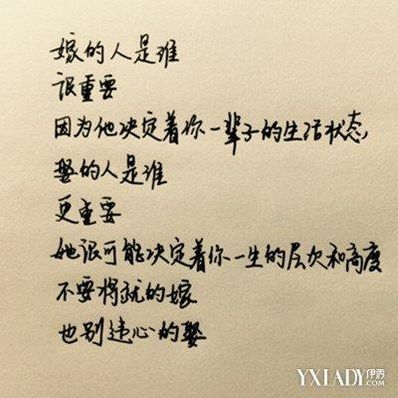 嫁的人是谁
很重要
因为他决定着你一辈子的生活状态
娶的人是谁
更重要
她很可能决定着你一生的层次和高度
不要将就的嫁
也别违心的娶
YXLADY伊秀.com